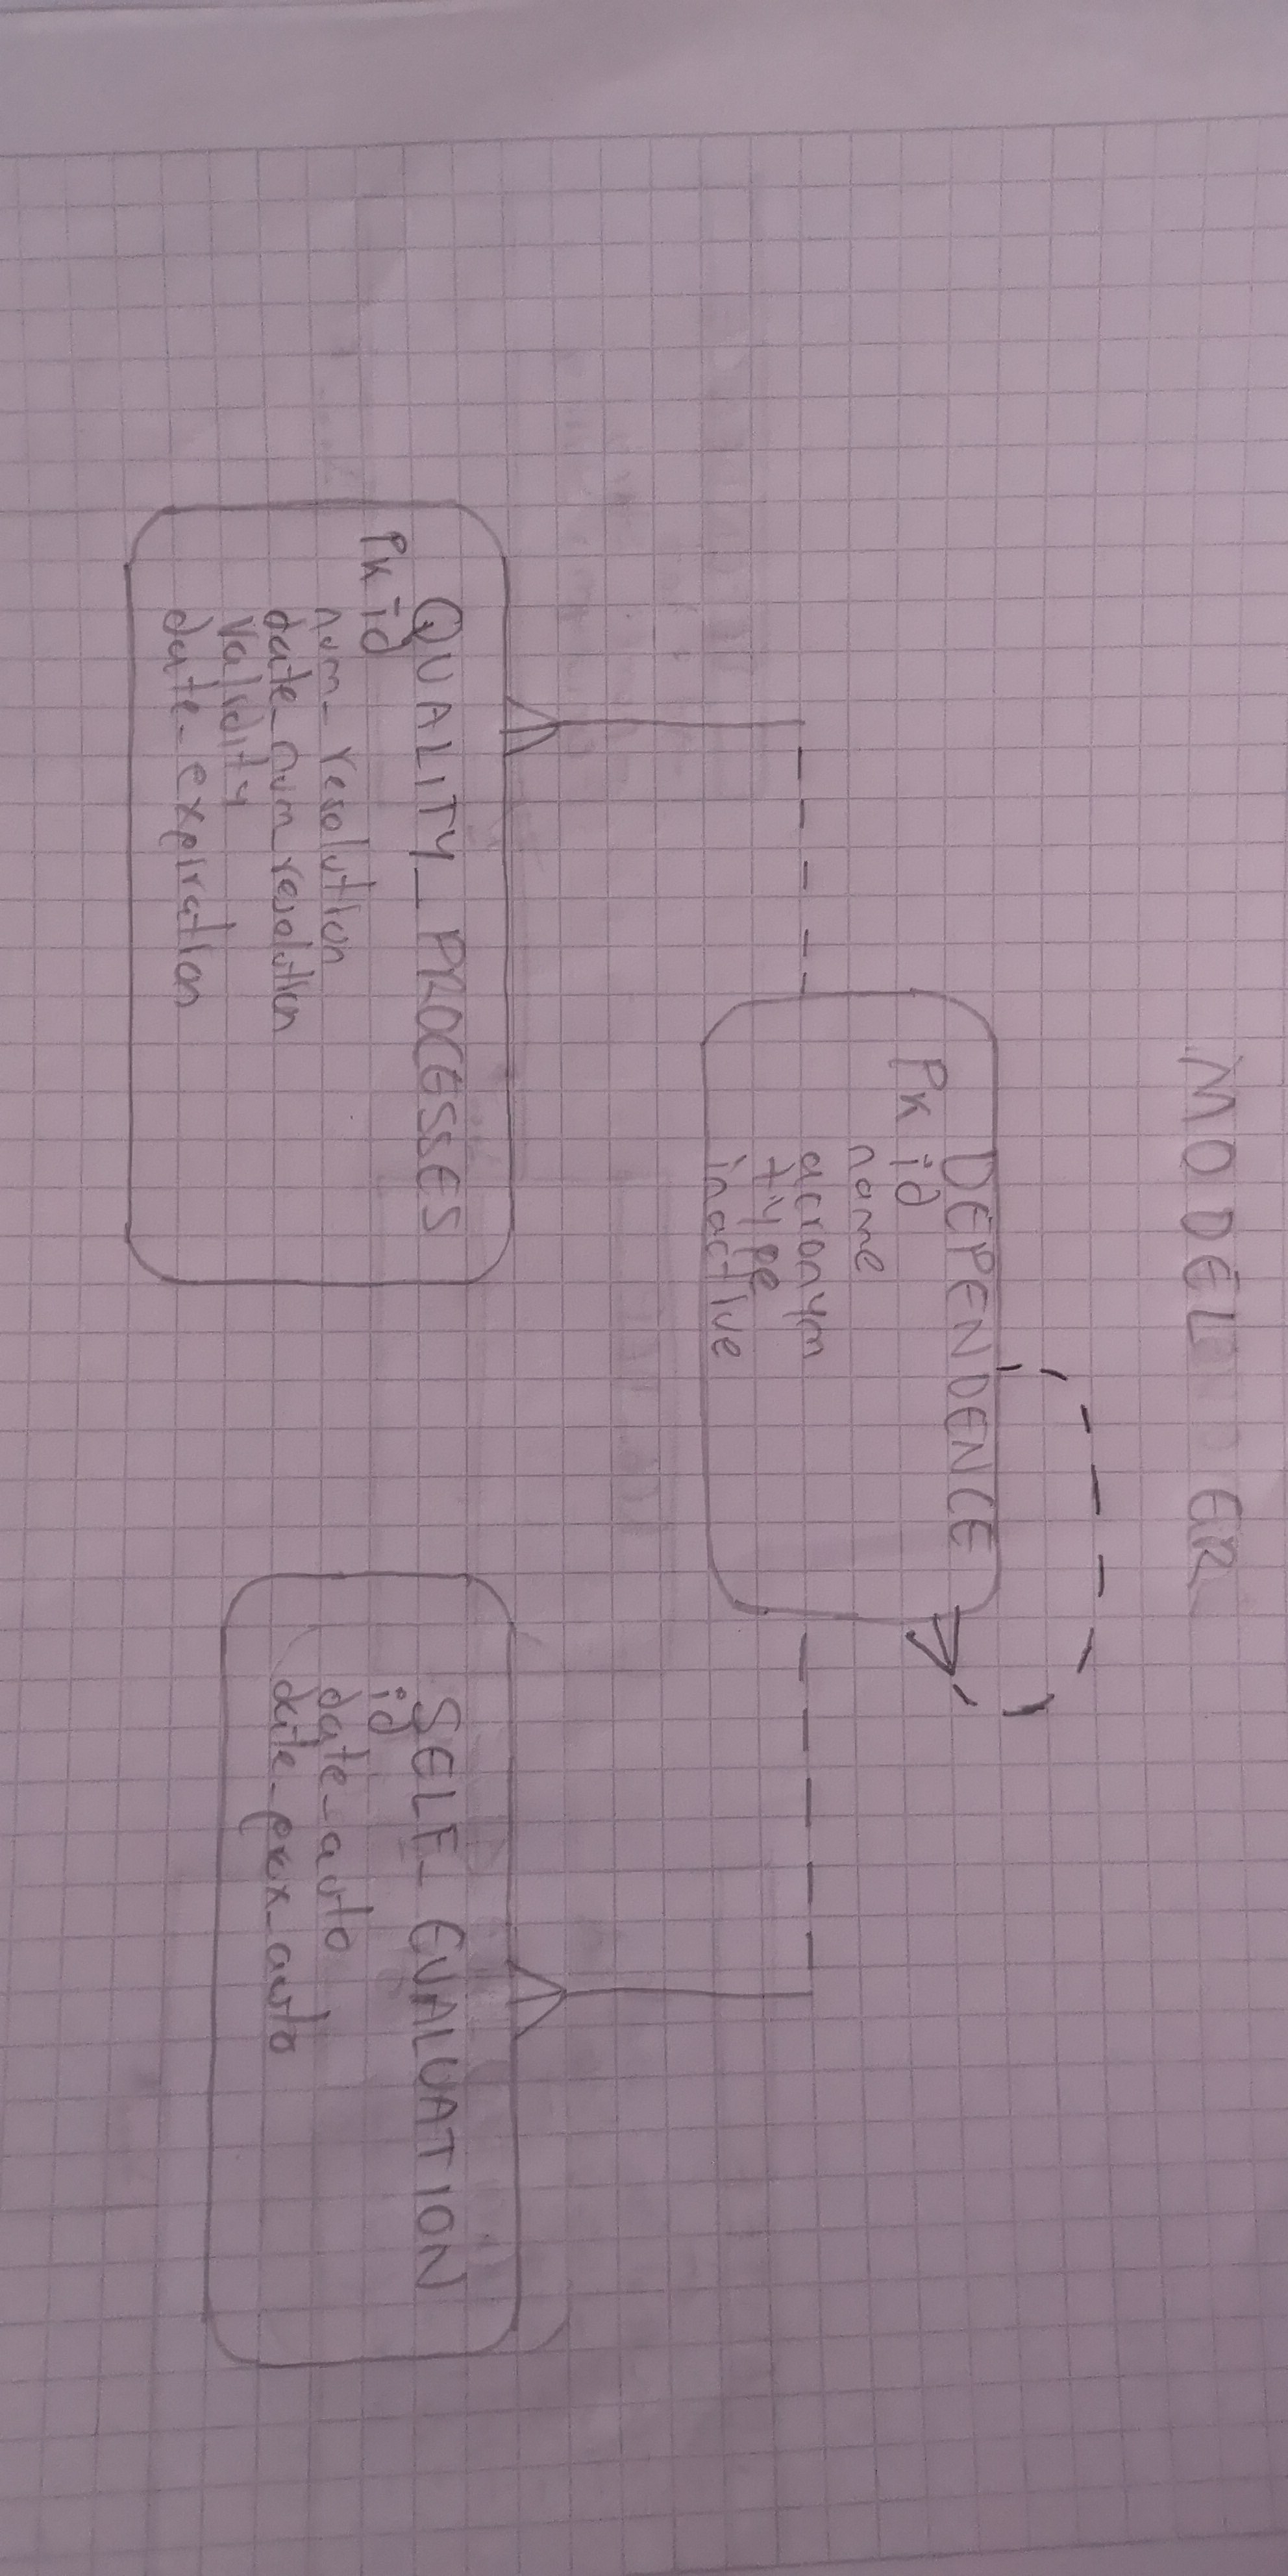 MODEL ER
DEPENDENCE
PK id
name
acronym
type
inactive
QUALITY_PROCESSES
PK id
num_resolution
date_num_resolution
validity
date_expiration
SELF_EVALUATION
id
date_auto
date_prox_auto